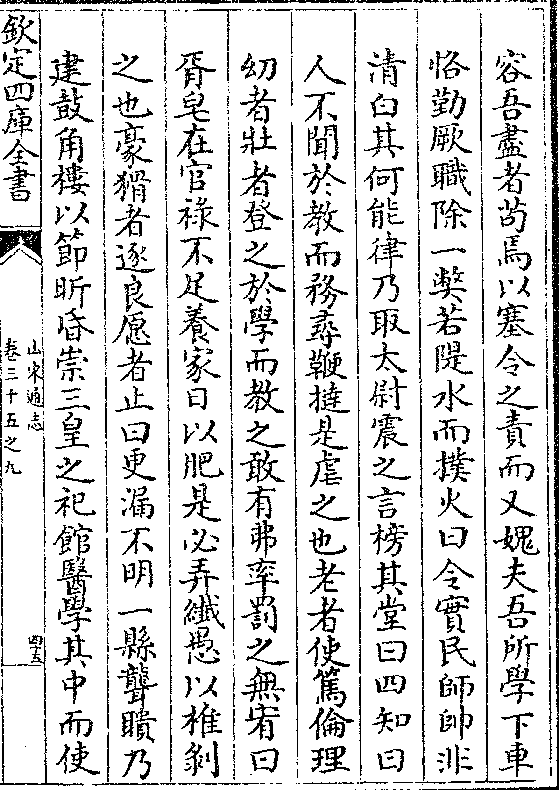 容吾盡者苟焉以塞令之責而又媿夫吾所學下車
恪勤厥職除一獘若隄水而撲火曰令實民師帥非
清白其何能律乃取太尉震之言榜其堂曰四知曰
人不聞於教而務尋鞭撻是虐之也老者使篤倫理
幼者壯者登之於學而教之敢有弗率罰之無宥曰
胥皂在官祿不足養家日以肥是必弄纖愚以椎剝
之也豪猾者逐良愿者止曰更漏不明一縣聾瞶乃
建鼓角樓以節昕昏崇三皇之祀館醫學其中而使
欽定四庫全書
山東通志
卷三十五之九
四五